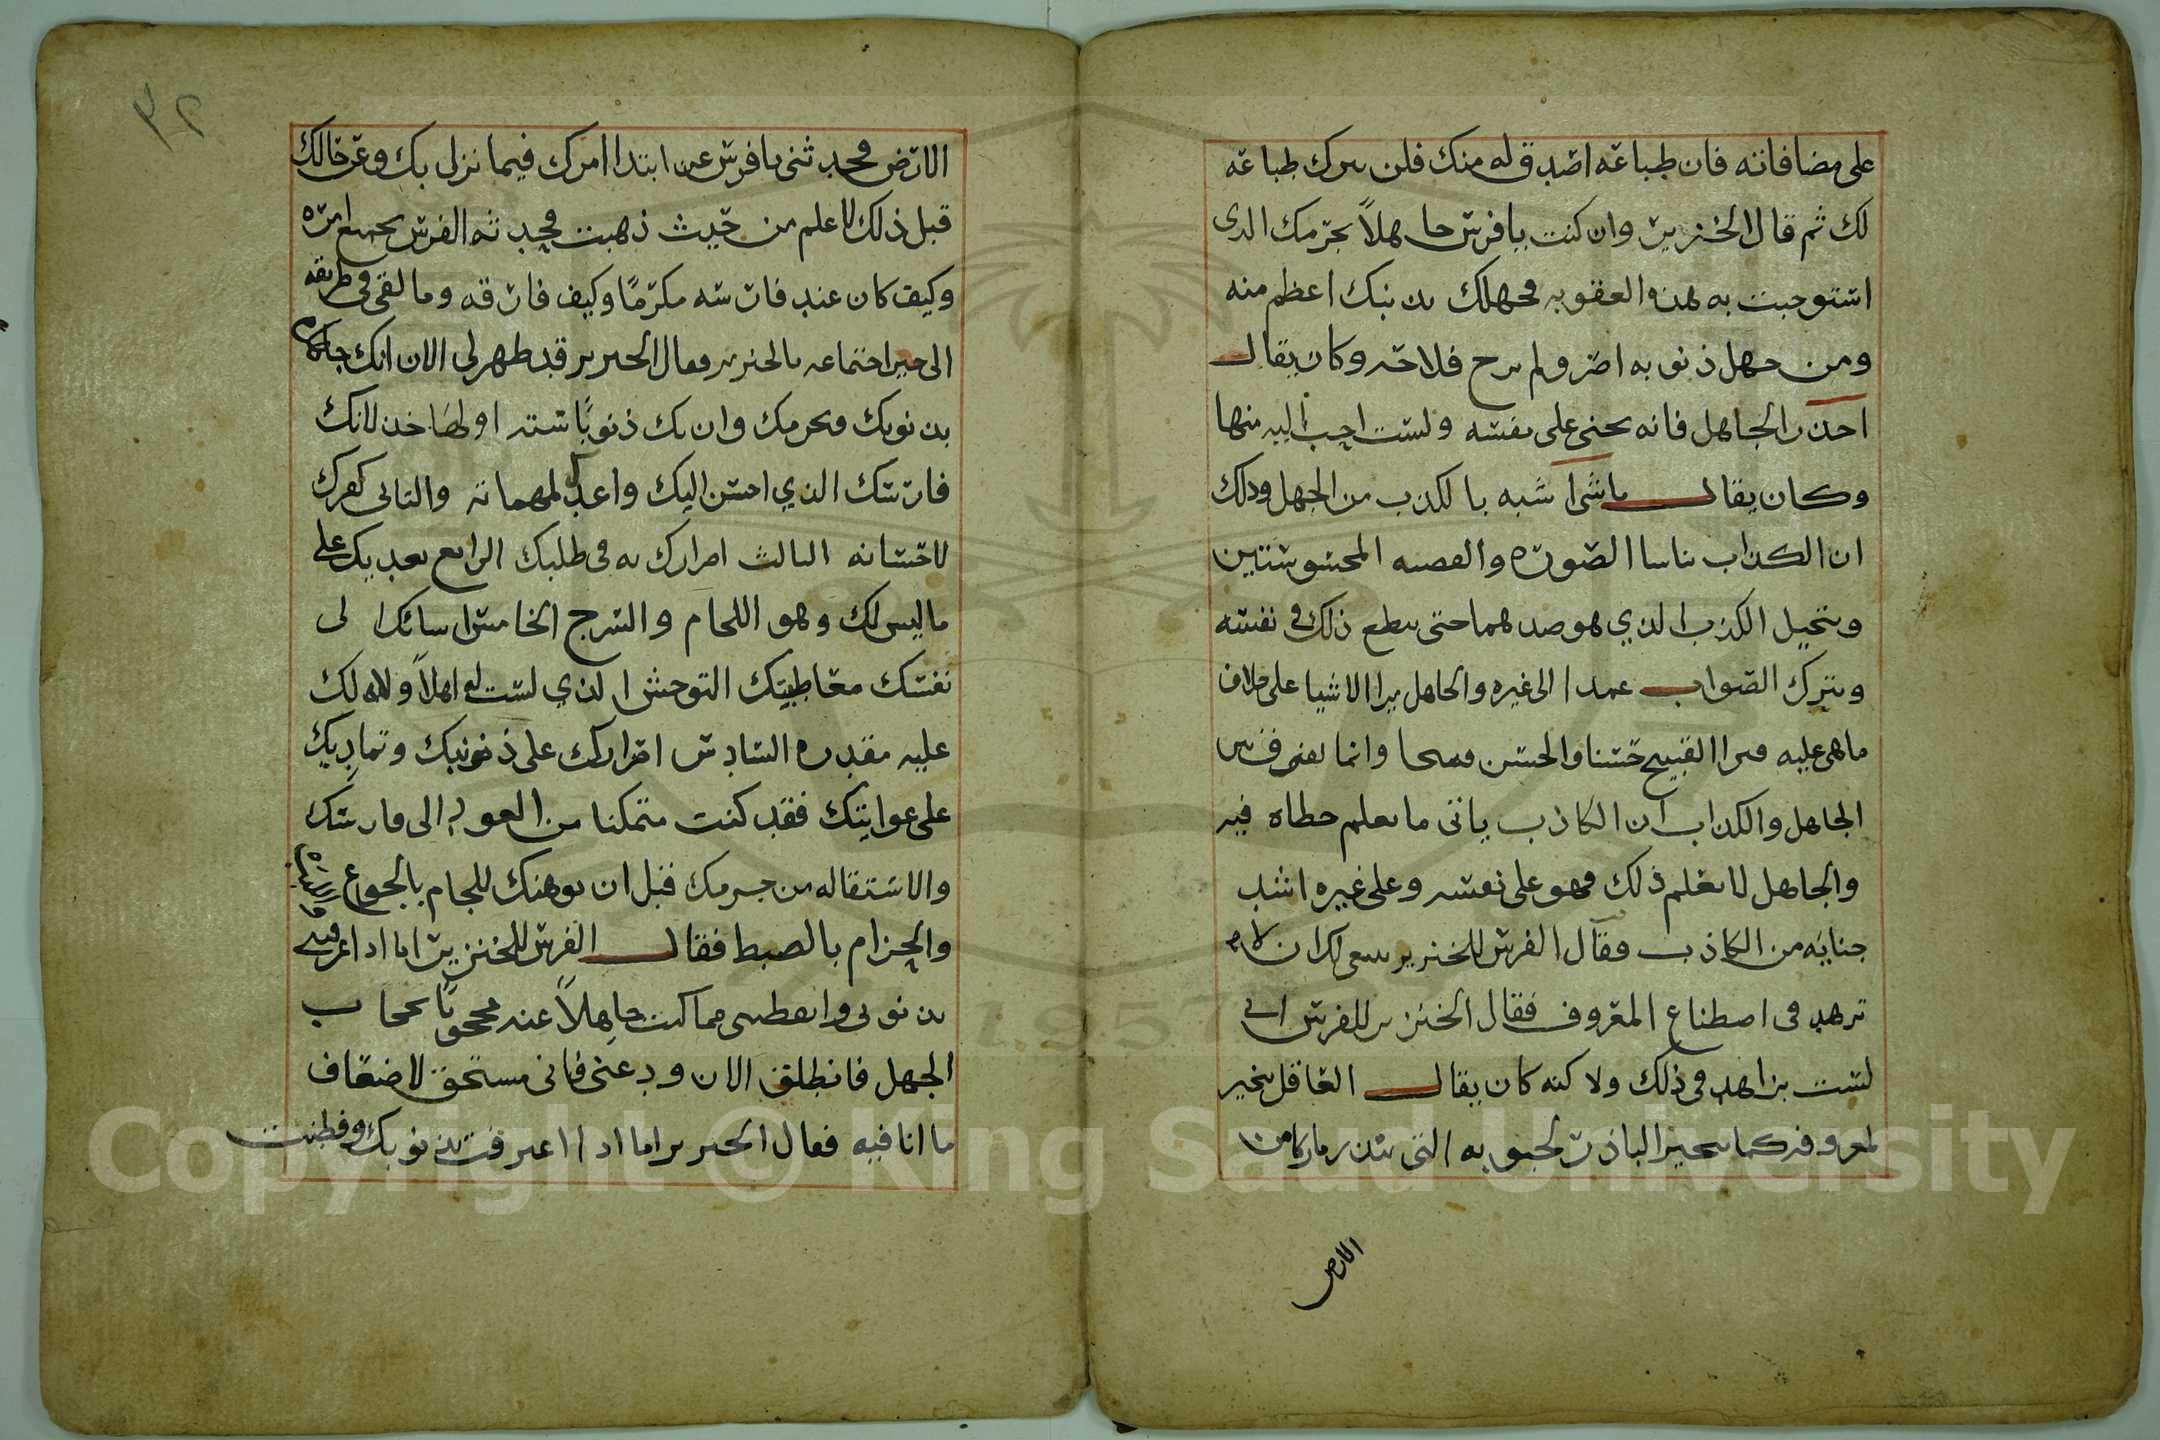 على مضافاته فان طباعه اصدق له منك فلن يترك طباعه
لك ثم قال الخنزير وان كنت يا فرس جاهلاً بجرمك الدى
استوجبت به هذه العقوبه فجهلك بذنبك اعظم منه
ومن جهل ذنوبه اصر ولم يرج فلاحه وكان يقال
احذر الجاهل فانه يجنى على نفسه ولست احب اليه منها
وكان يقال ما شى اشبه بالكذب من الجهل وذلك
ان الكذاب الصوره والقصه المحسوستين
ويتخيل الكذب الذي هو ضدهما حتى ينطبع ذلك في نفسه
ويترك الصواب عمدا الى غيره والجاهل يرا الاشيا على خلاف
ما هى عليه فيرا القبيح حسنا والحسن قبيحا وانما يفترق
الجاهل والكذاب ان الكاذب ياتى ما يعلم خطاه فيه
والجاهل لا يعلم ذلك فهو على نفسه وعلى غيره اشد
جنايه من الكاذب وقال الفرس للخنزير ينبغى لك ان لا
تزهد فى اصطناع المعروف فقال الخنزير للفرس انى
لست بزاهد فى ذلك ولاكنه كان يقال العاقل يتخير
لمعروفه كما يتخير الباذر لحبوبه التى يبذرها ما زكا من
الارض
٣٢
الارض فحدثنى يا فرس عن ابتدا امرك فيما نزل بك وعن حالك
قبل ذلك لاعلم من حيث ذهبت فحدثه الفرس بجميع امره
وكيف كان عند فارسه مكرمًا وكيف فارقه وما لقى فى طريقه
الى حين اجتماعه بالخنزير فقال الخنزير قد ظهر لى الان انك جاهل
بذنوبك وبجرمك وان لك ذنوبًا سته اولها خذلانك
فارسك الذي احسن اليك واعدك لمهماته والثانى كفرك
لاحسانه الثالث اضرارك به فى طلبك الرابع تعديك على
ما ليس لك وهو اللجام والسرج الخامس اساتك الى
نفسك بتعاطيك التوحش الذي لست له اهلاً ولا لك
عليه مقدره السادس اصرارك على ذنوبك وتماديك
على غوايتك فقد كنت متمكنا من العود الى فارسك
والاستقاله من جرمك قبل ان يوهنك اللجام بالجوع
والحزام بالضبط فقال الفرس للخنزير اما اذا عرفتنى
بذنوبى وايقظتنى مما كنت جاهلاً عنه محجوبًا بحجاب
الجهل فانطلق الان ودعنى فانى مستحق لاضعاف
ما انا فيه فقال الخنزير اما اذا اعترفت بذنوبك وفطنت